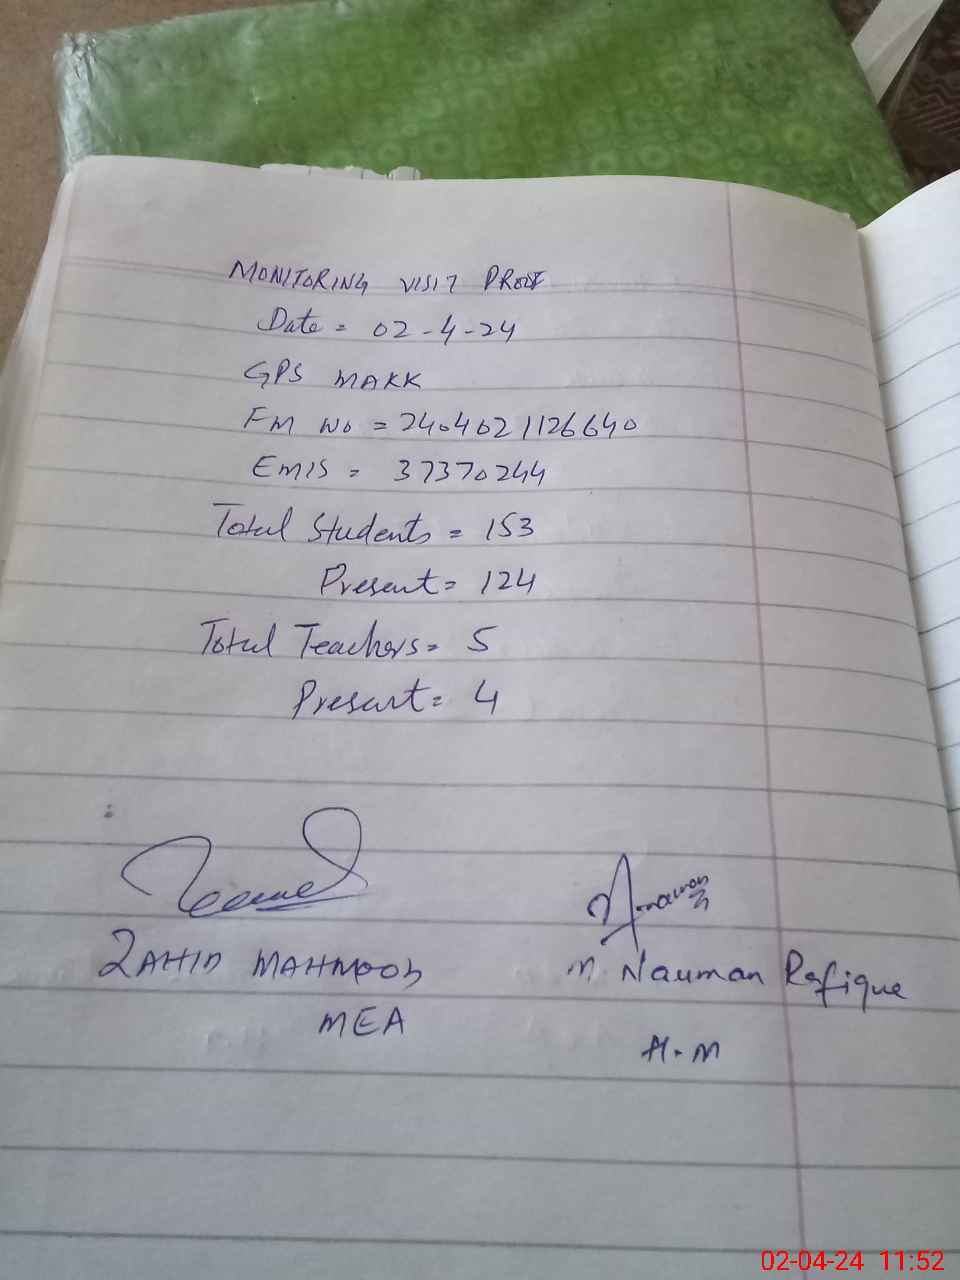 MONITORING VISIT PROOF
Date = 02-4-24
GPS MAKK
FM NO = 2404021126640
EMIS = 37370244
Total Students = 153
Present = 124
Total Teachers = 5
Present = 4
ZAHID MAHMOOD
M Nauman Rafique
MEA
H.M
02-04-24 11:52